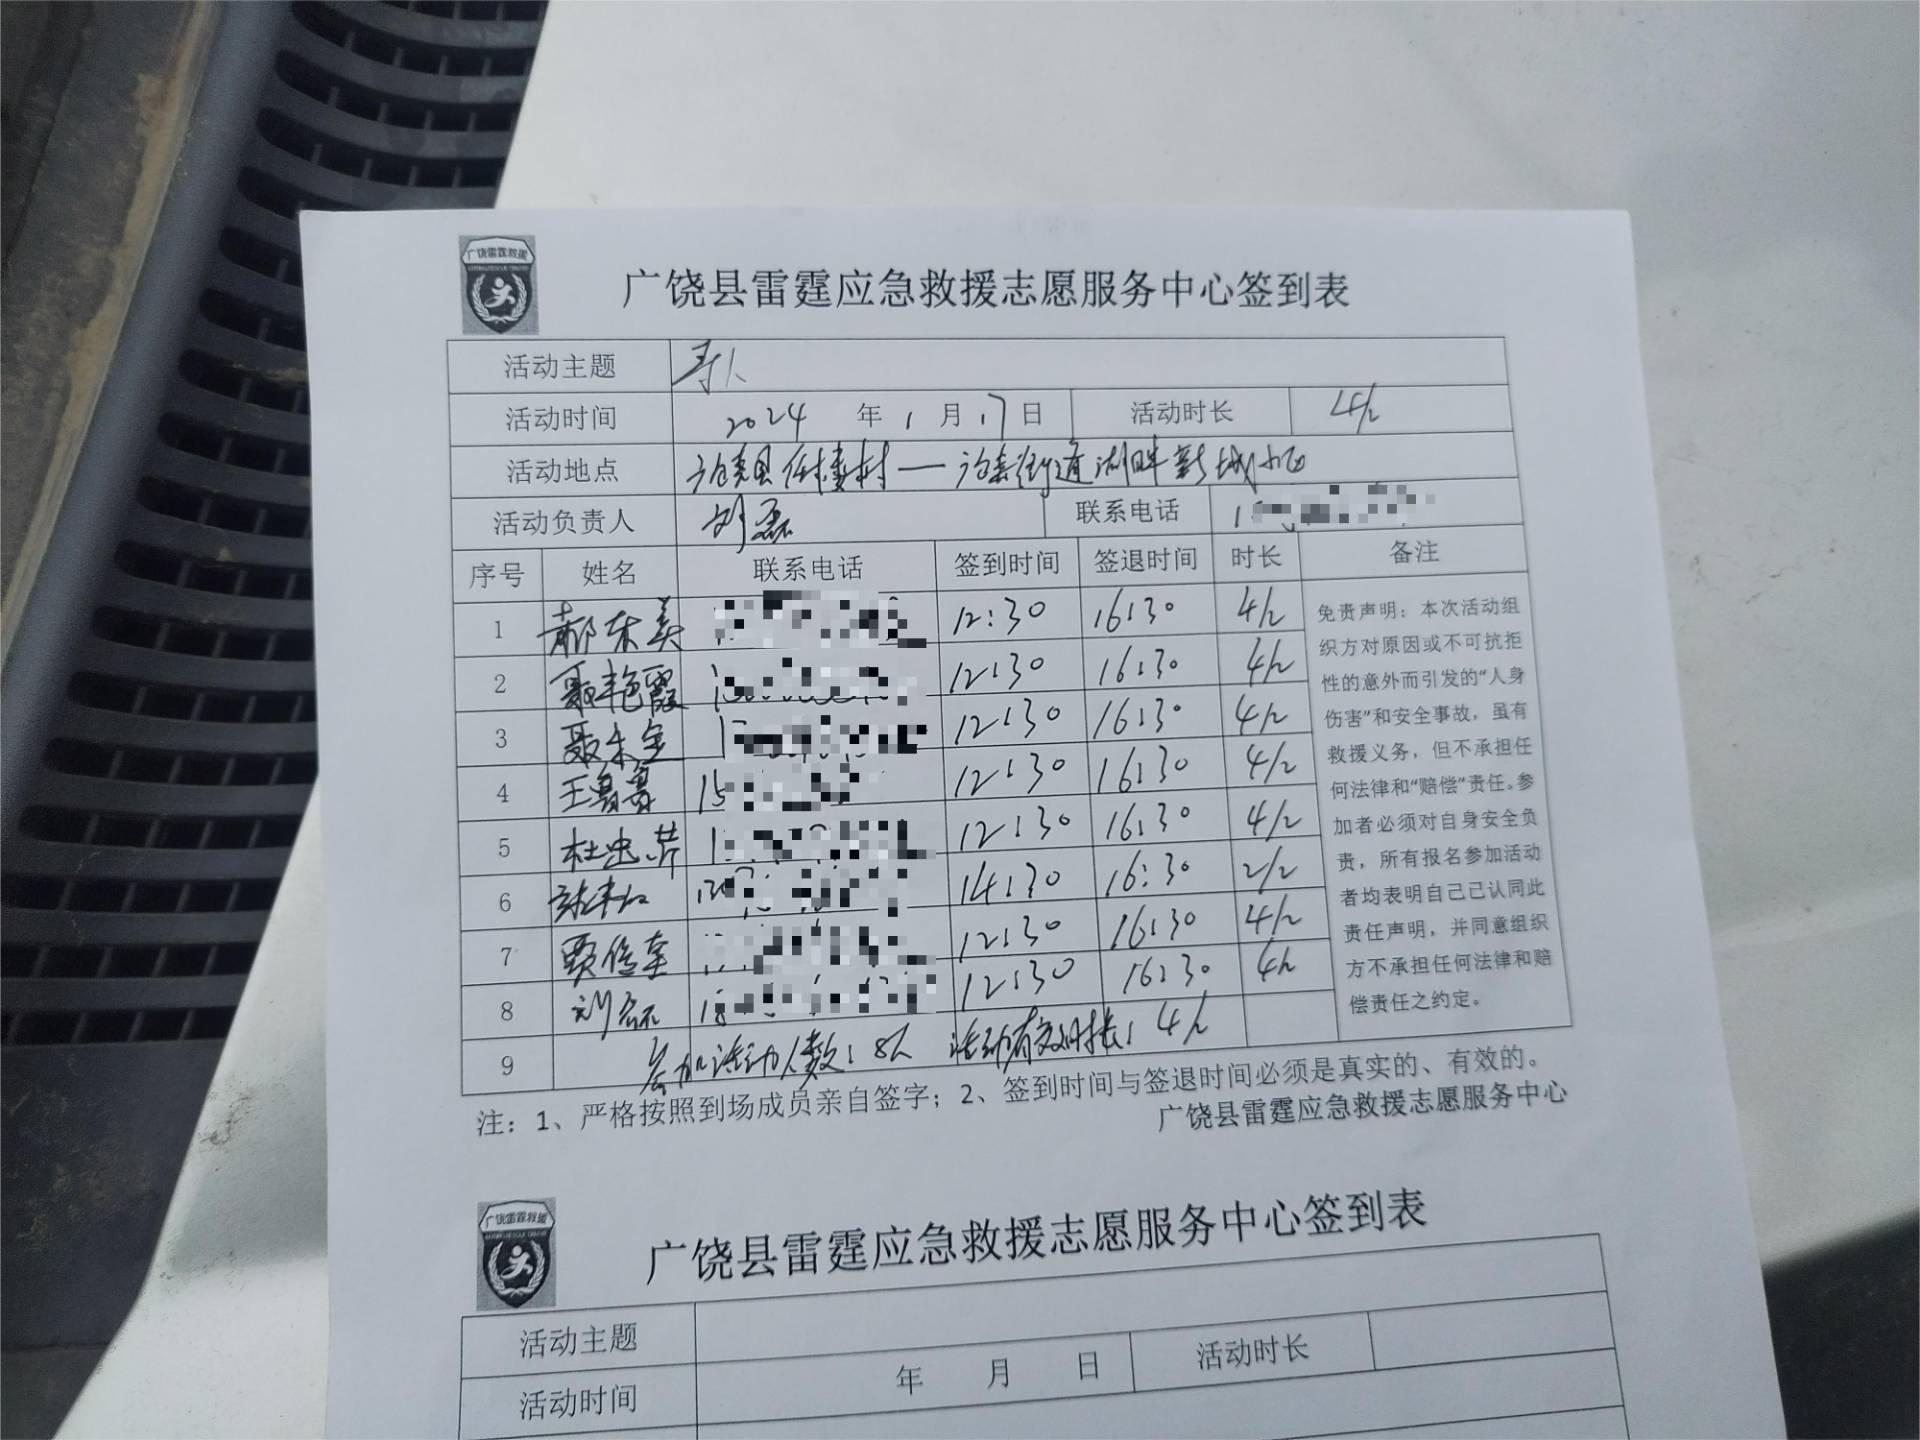 广饶雷霆救援
广饶县雷霆应急救援志愿服务中心签到表
活动主题 寻人
活动时间 2024 年 1 月 17 日 活动时长 4h
活动地点 村 — 街道湖畔新城小区
活动负责人 刘磊 联系电话 1
序号 姓名 联系电话 签到时间 签退时间 时长 备注
1 郝东美 12:30 16:30 4h
2 聂艳霞 1 12:30 16:30 4h
3 聂 1 12:30 16:30 4h
4 王 15 12:30 16:30 4h
5 杜忠 1 12:30 16:30 4h
6 14:30 16:30 2h
7 贾 12:30 16:30 4h
8 刘磊 18 12:30 16:30 4h
9 参加活动人数:8人 活动有效时长:4h
免责声明：本次活动组
织方对原因或不可抗拒
性的意外而引发的“人身
伤害”和安全事故，虽有
救援义务，但不承担任
何法律和“赔偿”责任。参
加者必须对自身安全负
责，所有报名参加活动
者均表明自己已认同此
责任声明，并同意组织
方不承担任何法律和赔
偿责任之约定。
注：1、严格按照到场成员亲自签字；2、签到时间与签退时间必须是真实的、有效的。
广饶县雷霆应急救援志愿服务中心
广饶雷霆救援
广饶县雷霆应急救援志愿服务中心签到表
活动主题
活动时间 年 月 日 活动时长